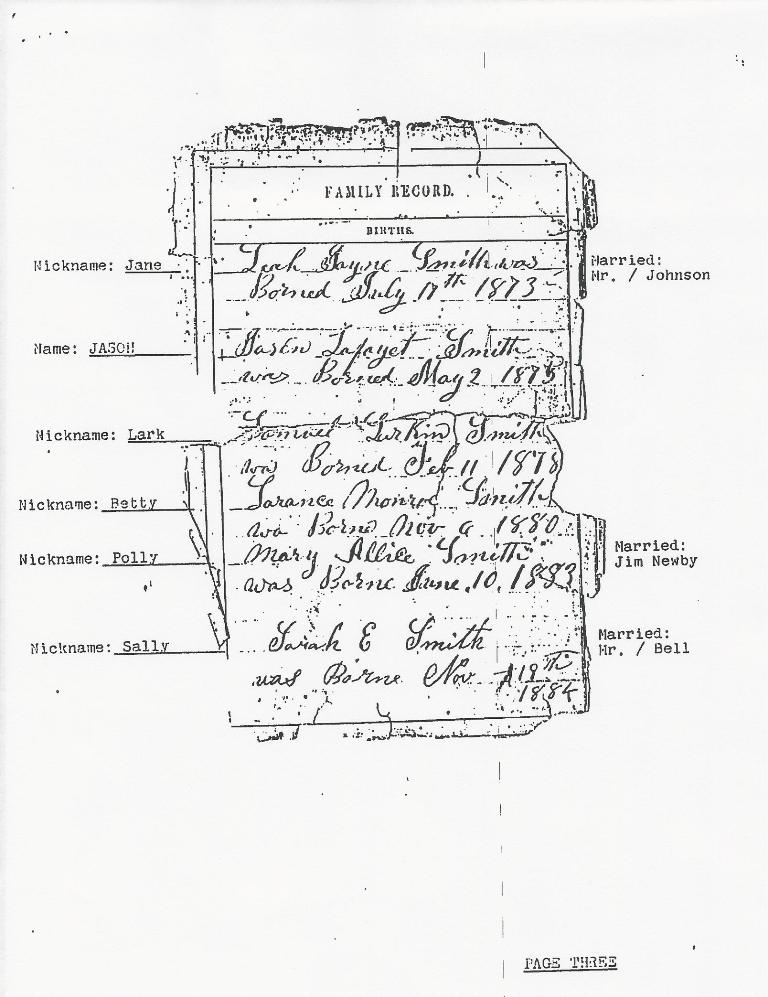 FAMILY RECORD.
BIRTHS.
Nickname: Jane
Leah Jayne Smith was
Borned July 17th 1873
Married:
Mr. / Johnson
Name: JASON
Jasen Lafayet Smith
was Borned May 2 1875
Nickname: Lark
Samuel Larkin Smith
was Borned Feb 11 1878
Nickname: Betty
Monroe Smith
wa Borne Nov 1880
Nickname: Polly
Mary Allice Smith
was Borne June 10, 1883
Married:
Jim Newby
Nickname: Sally
Sarah E Smith
was Borne Nov 19th
1884
Married:
Mr. / Bell
PAGE THREE